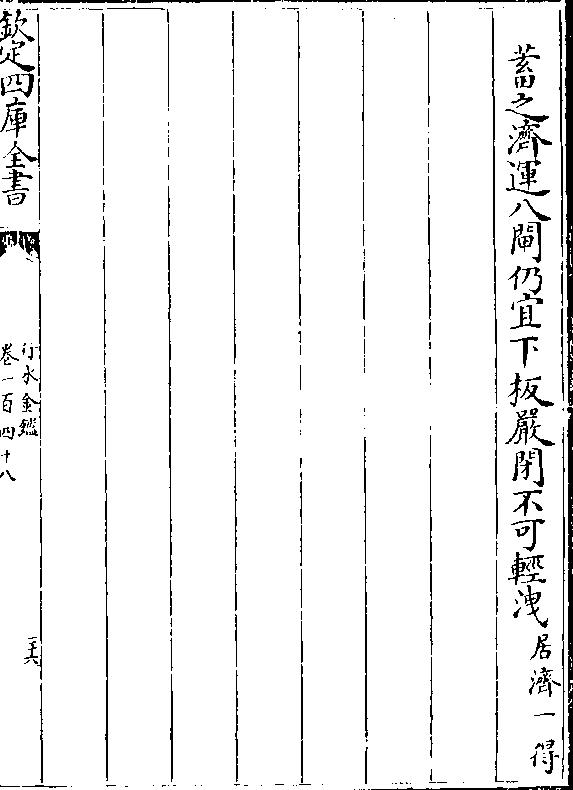 蓄之濟運八閘仍宜下板嚴閉不可輕洩居濟一得
欽定四庫全書
行水金鑑
卷一百四十八
二十六